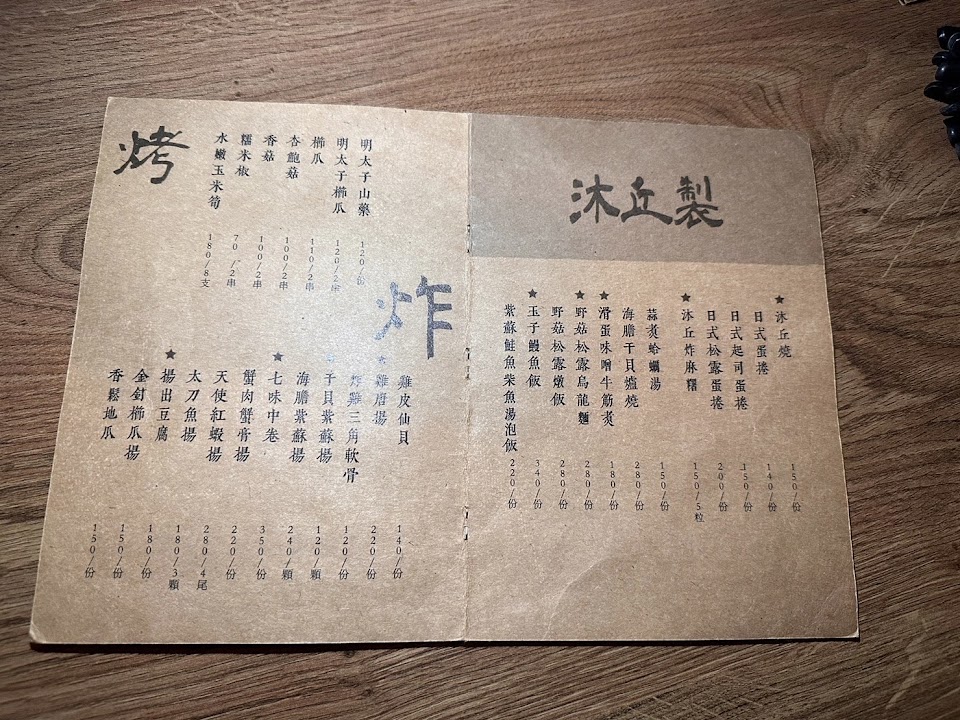 沐丘製
★沐丘燒 150/份
日式蛋捲 140/份
日式起司蛋捲 150/份
日式松露蛋捲 200/份
★沐丘炸麻糬 150/5粒
蒜煮蛤蠣湯 150/份
海膽干貝爐燒 280/份
★滑蛋味噌牛筋煮 180/份
★野菇松露烏龍麵 280/份
野菇松露燉飯 280/份
★玉子鰻魚飯 340/份
紫蘇鮭魚柴魚湯泡飯 220/份
烤
明太子山藥 120/
明太子櫛瓜 120/2串
櫛瓜 110/2串
杏鮑菇 100/2串
香菇 100/2串
糯米椒 70/2串
水嫩玉米筍 180/8支
炸
雞皮仙貝 140/份
★雞唐揚 220/份
炸雞三角軟骨 120/份
干貝紫蘇揚 120/顆
海膽紫蘇揚 240/顆
★七味中卷 350/份
蟹肉蟹膏揚 220/份
天使紅蝦揚 280/4尾
太刀魚揚 180/3顆
★揚出豆腐 180/份
金針櫛瓜揚 150/份
香鬆地瓜 150/份